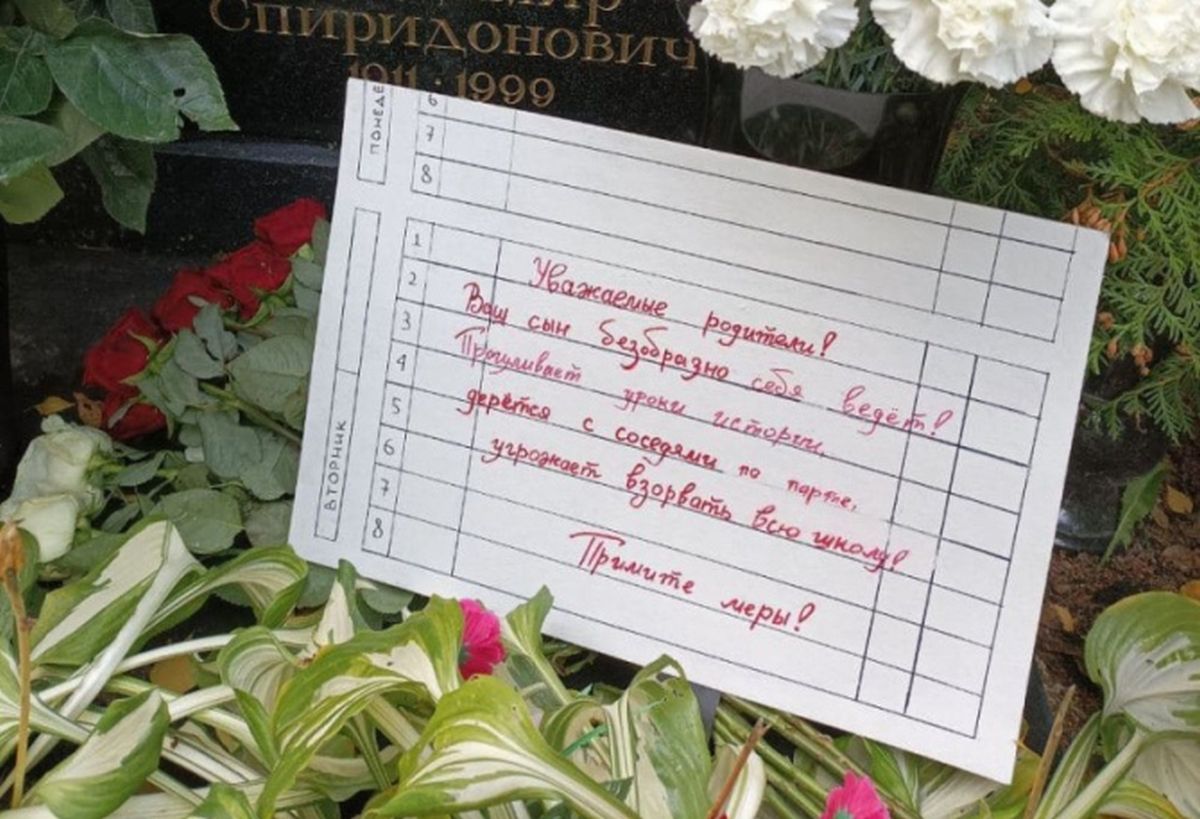 Спиридонович
1911 · 1999
6
7
8
ПОНЕДЕ
1
2
3
4
5
6
7
8
ВТОРНИК
Уважаемые родители!
Ваш сын безобразно себя ведёт!
Прогуливает уроки истории,
дерётся с соседями по парте,
угрожает взорвать всю школу!
Примите меры!